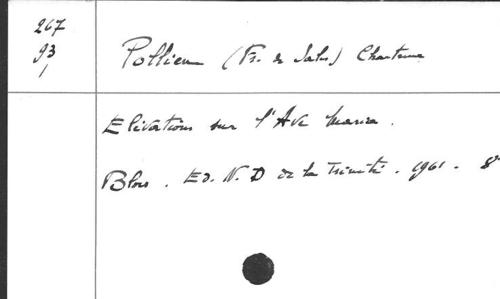 267
93
/
Pollien (Fr. de Sales) Chartreux
Elévations sur l'Ave Maria.
Blois. Ed. N. D de la Trinité. 1961. 8°